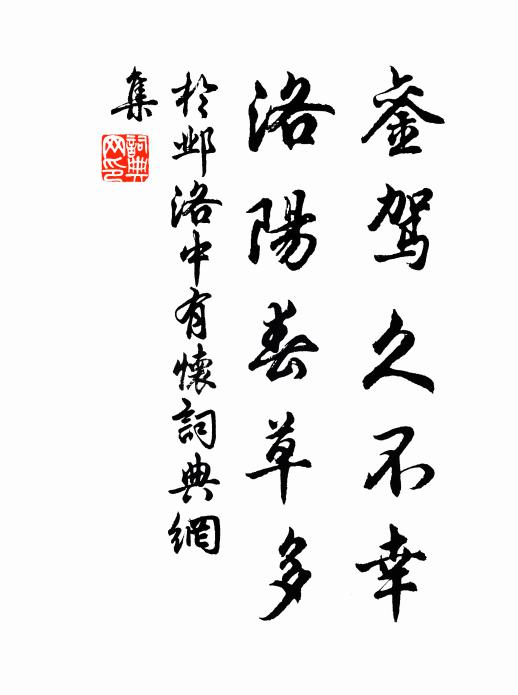 銮驾久不幸
洛陽春草多
於邺洛中有懷詞典網
集
詞典
网印